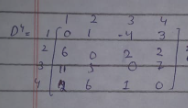 1 2 3 4
D⁴= 1 0 1 -4 3
2 6 0 2 2
3 11 5 0 7
4 6 1 0